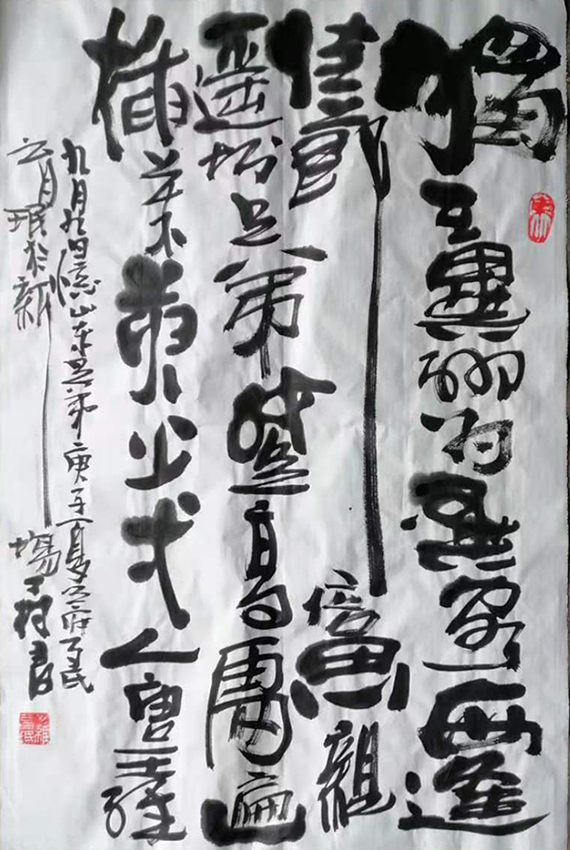 獨在異鄉為異客每逢
佳節倍思親
遙知兄弟登高處遍
插茱萸少弌人唐王維
九月九日憶山東兄弟庚子夏
月於新